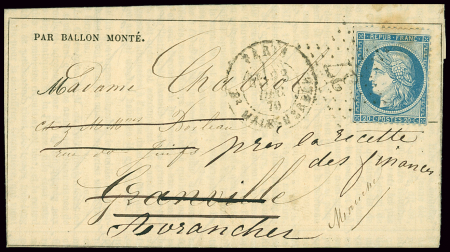 PAR BALLON MONTÉ.
PARIS
22
DEC.
70
REPUB. FRANC.
20 C. POSTES 20 C.
Madame Cha
chez Madme
rue des Juifs
près la recette
des finances
Granville
Avranches
Manche